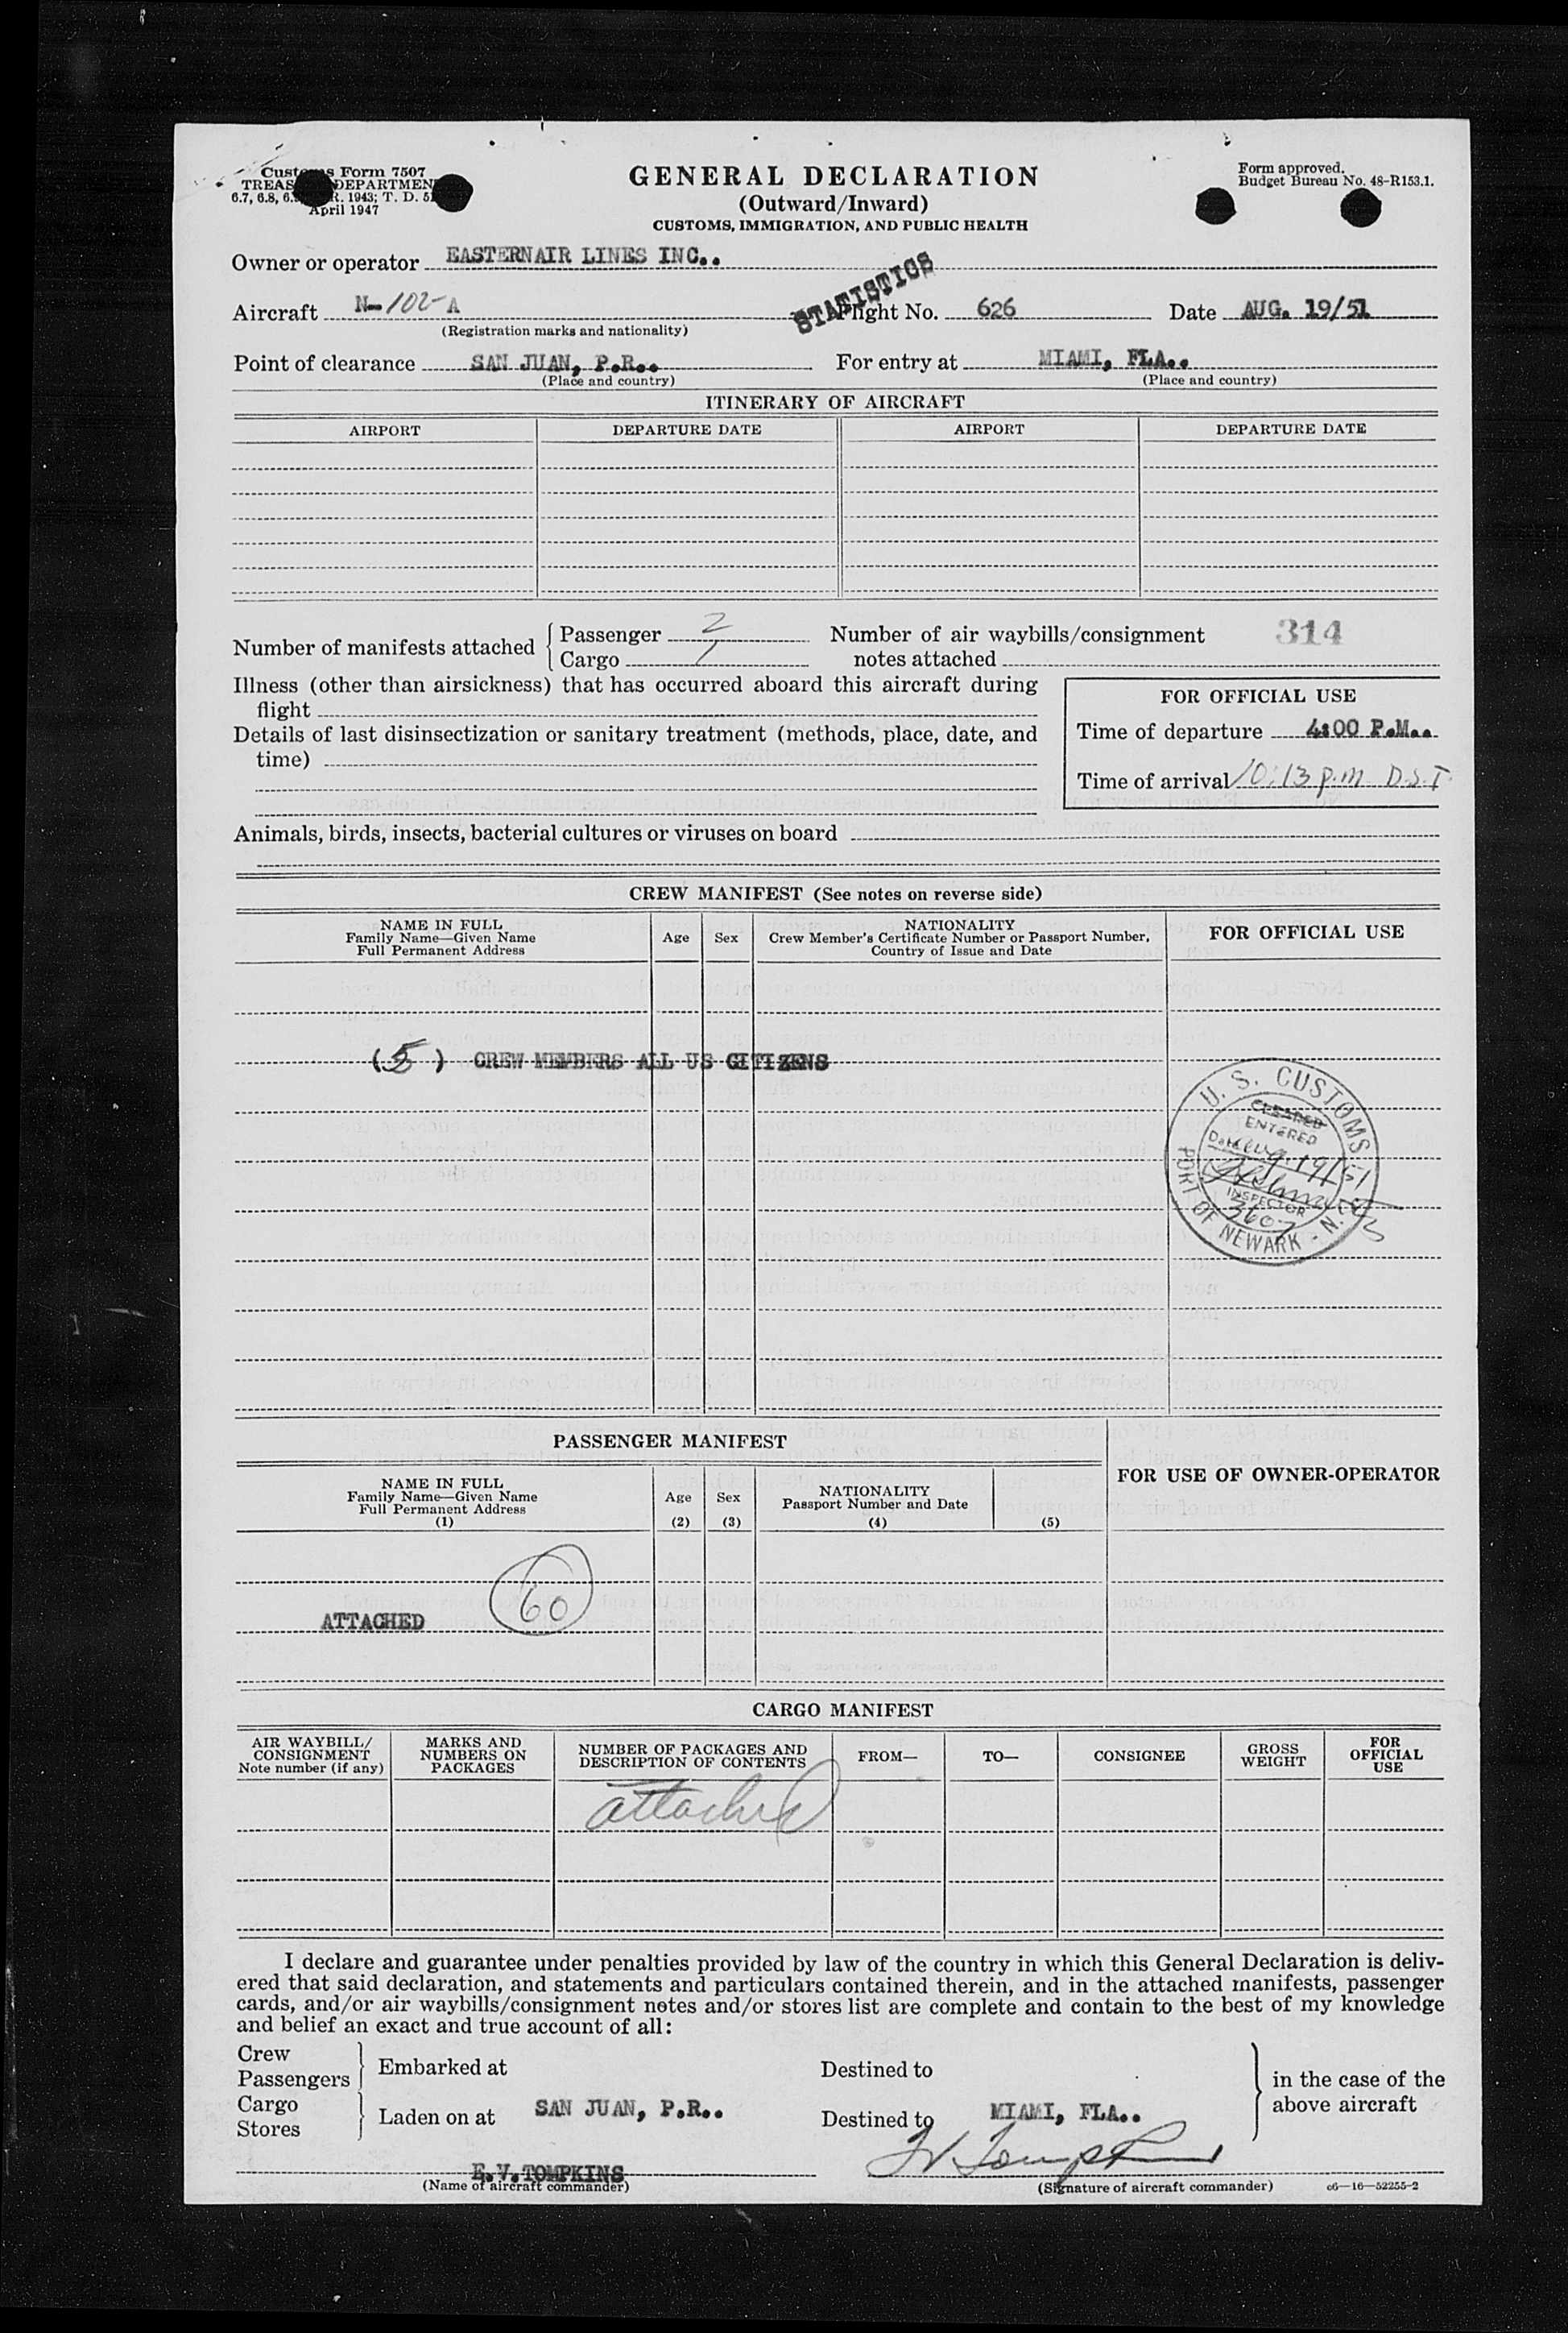 Customs Form 7507
TREAS DEPARTMEN
6.7, 6.8, 6. R. 1943; T. D. 51
April 1947
GENERAL DECLARATION
(Outward/Inward)
CUSTOMS, IMMIGRATION, AND PUBLIC HEALTH
Form approved.
Budget Bureau No. 48-R153.1.
Owner or operator EASTERNAIR LINES INC..
STATISTICS
Aircraft N-102-A Flight No. 626 Date AUG. 19/51
(Registration marks and nationality)
Point of clearance SAN JUAN, P.R.. For entry at MIAMI, FLA..
(Place and country) (Place and country)
ITINERARY OF AIRCRAFT
AIRPORT DEPARTURE DATE AIRPORT DEPARTURE DATE
Number of manifests attached Passenger 2 Number of air waybills/consignment 314
Cargo 1 notes attached
Illness (other than airsickness) that has occurred aboard this aircraft during
flight
Details of last disinsectization or sanitary treatment (methods, place, date, and
time)
FOR OFFICIAL USE
Time of departure 4:00 P.M..
Time of arrival 10:13 p.m. D.S.T
Animals, birds, insects, bacterial cultures or viruses on board
CREW MANIFEST (See notes on reverse side)
NAME IN FULL
Family Name—Given Name
Full Permanent Address
Age Sex
NATIONALITY
Crew Member's Certificate Number or Passport Number,
Country of Issue and Date
FOR OFFICIAL USE
(5) CREW MEMBERS ALL US CITIZENS
U. S. CUSTOMS
CLEARED
ENTERED
Date Aug. 19/51
INSPECTOR
3607
PORT OF NEWARK - N.J.
PASSENGER MANIFEST
NAME IN FULL
Family Name—Given Name
Full Permanent Address
(1)
Age
(2)
Sex
(3)
NATIONALITY
Passport Number and Date
(4)
(5)
FOR USE OF OWNER-OPERATOR
60
ATTACHED
CARGO MANIFEST
AIR WAYBILL/
CONSIGNMENT
Note number (if any)
MARKS AND
NUMBERS ON
PACKAGES
NUMBER OF PACKAGES AND
DESCRIPTION OF CONTENTS
FROM—
TO—
CONSIGNEE
GROSS
WEIGHT
FOR
OFFICIAL
USE
attached
I declare and guarantee under penalties provided by law of the country in which this General Declaration is deliv-
ered that said declaration, and statements and particulars contained therein, and in the attached manifests, passenger
cards, and/or air waybills/consignment notes and/or stores list are complete and contain to the best of my knowledge
and belief an exact and true account of all:
Crew
Passengers
Embarked at Destined to
Cargo
Stores
Laden on at SAN JUAN, P.R.. Destined to MIAMI, FLA..
in the case of the
above aircraft
E.V.TOMPKINS
(Name of aircraft commander)
(Signature of aircraft commander)
c6—16—52255-2